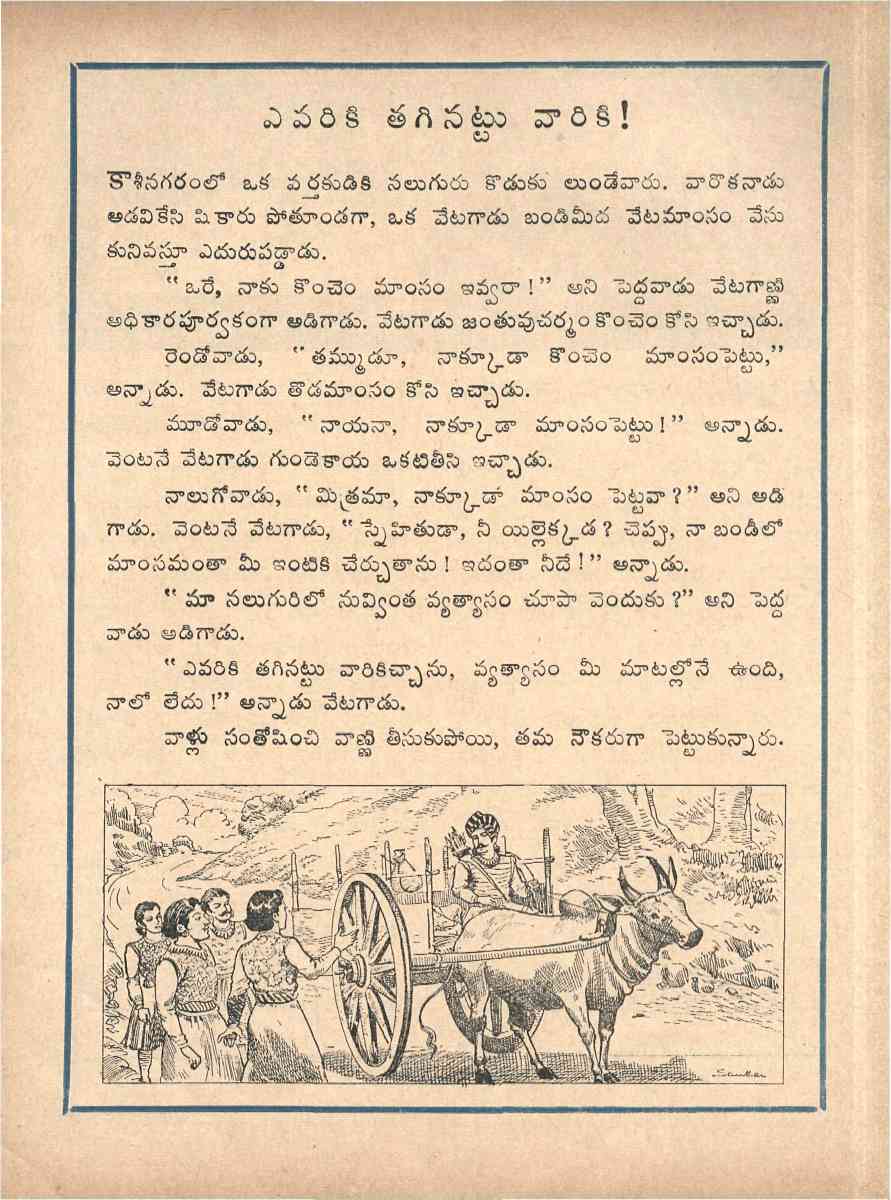 ఎవరికి తగినట్టు వారికి!
కాశీనగరంలో ఒక వర్తకుడికి నలుగురు కొడుకు లుండేవారు. వారొకనాడు
అడవికేసి షికారు పోతూండగా, ఒక వేటగాడు బండిమీద వేటమాంసం వేసు
కునివస్తూ ఎదురుపడ్డాడు.
“ఒరే, నాకు కొంచెం మాంసం ఇవ్వరా!” అని పెద్దవాడు వేటగాణ్ణి
అధికారపూర్వకంగా అడిగాడు. వేటగాడు జంతువుచర్మం కొంచెం కోసి ఇచ్చాడు.
రెండోవాడు, “తమ్ముడూ, నాక్కూడా కొంచెం మాంసంపెట్టు,”
అన్నాడు. వేటగాడు తొడమాంసం కోసి ఇచ్చాడు.
మూడోవాడు, “నాయనా, నాక్కూడా మాంసంపెట్టు!” అన్నాడు.
వెంటనే వేటగాడు గుండెకాయ ఒకటితీసి ఇచ్చాడు.
నాలుగోవాడు, “మిత్రమా, నాక్కూడా మాంసం పెట్టవా?” అని అడి
గాడు. వెంటనే వేటగాడు, “స్నేహితుడా, నీ యిల్లెక్కడ? చెప్పు, నా బండీలో
మాంసమంతా మీ ఇంటికి చేర్చుతాను! ఇదంతా నీదే!” అన్నాడు.
“మా నలుగురిలో నువ్వింత వ్యత్యాసం చూపా వెందుకు?” అని పెద్ద
వాడు అడిగాడు.
“ఎవరికి తగినట్టు వారికిచ్చాను, వ్యత్యాసం మీ మాటల్లోనే ఉంది,
నాలో లేదు!” అన్నాడు వేటగాడు.
వాళ్లు సంతోషించి వాణ్ణి తీసుకుపోయి, తమ నౌకరుగా పెట్టుకున్నారు.
Sankar